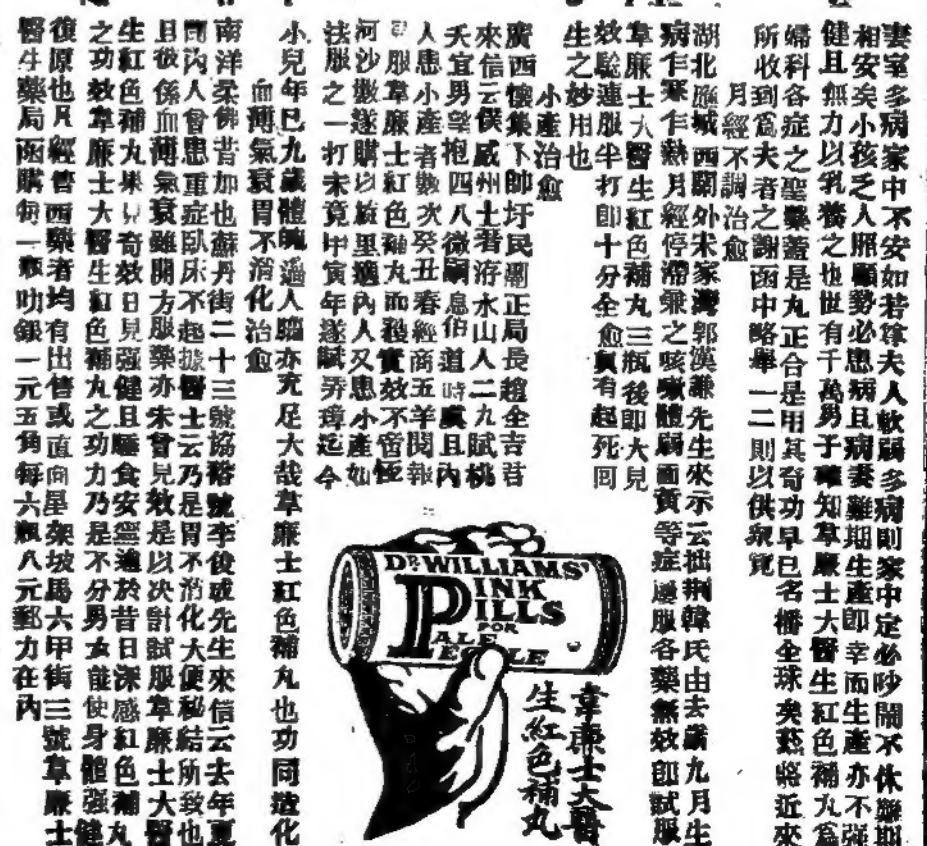 妻室多病家中不安如若尊夫人軟弱多病則家中定必吵鬧不休難期
相安矣小孩乏人照顧勢必患病且病妻難期生產即幸而生產亦不强
健且無力以乳養之也世有千萬男子確知韋廉士大醫生紅色補丸爲
婦科各症之聖藥蓋是丸正合是用其奇功早已名播全球矣茲將近來
所收到爲夫者之謝函中略舉一二則以供衆覽
月經不調治愈
湖北應城西關外末家灣郭漢謙先生來示云拙荆韓氏由去歲九月生
病乍寒乍熱月經停滯兼之咳嗽體弱面黃等症屢服各藥無效即試服
韋廉士大醫生紅色補丸三瓶後即大見
效驗連服半打即十分全愈眞有起死囘
生之妙用也
小產治愈
廣西懷集下帥圩民團正局長趙全吉君
來信云僕威州士著浒水山人二九賦桃
夭宜男望抱四八微嗣息伯道時虞且內
人患小產者數次癸丑春經商五羊閱報
服韋廉士紅色補丸而獲實效不啻恆
河沙數遂購以旋里適內人又患小產如
法服之一打未竟甲寅年遂賦弄璋迄今
小兒年已九歲體魄過人腦亦充足大哉韋廉士紅色補丸也功同造化
血薄氣衰胃不消化治愈
南洋柔佛昔加也蘇丹街二十三號協裕號李俊成先生來信云去年夏
間內人曾患重症臥床不起據醫士云乃是胃不消化大便秘結所致也
且彼係血薄氣衰雖開方服藥亦未曾見效是以决計試服韋廉士大醫
生紅色補丸果見奇效日見强健且睡食安寧適於昔日深感紅色補丸
之功效韋廉士大醫生紅色補丸之功力乃是不分男女能使身體强健
復原也凡經售西藥者均有出售或直向星架坡馬六甲街三號韋廉士
醫生藥局函購每一瓶叻銀一元五角每六瓶八元郵力在內
DR WILLIAMS'
PINK
PILLS
FOR
PALE
PEOPLE
韋廉士大醫
生紅色補丸